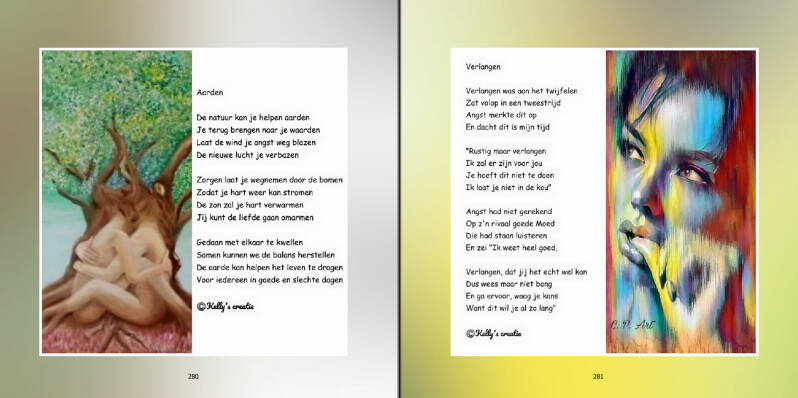 Aarden
De natuur kan je helpen aarden
Je terug brengen naar je waarden
Laat de wind je angst weg blazen
De nieuwe lucht je verbazen
Zorgen laat je wegnemen door de bomen
Zodat je hart weer kan stromen
De zon zal je hart verwarmen
Jij kunt de liefde gaan omarmen
Gedaan met elkaar te kwellen
Samen kunnen we de balans herstellen
De aarde kan helpen het leven te dragen
Voor iedereen in goede en slechte dagen
©Kelly's creatie
280
Verlangen
Verlangen was aan het twijfelen
Zat volop in een tweestrijd
Angst merkte dit op
En dacht dit is mijn tijd
"Rustig maar verlangen
Ik zal er zijn voor jou
Je hoeft dit niet te doen
Ik laat je niet in de kou"
Angst had niet gerekend
Op z'n rivaal goede Moed
Die had staan luisteren
En zei "Ik weet heel goed,
Verlangen, dat jij het echt wel kan
Dus wees maar niet bang
En ga ervoor, waag je kans
Want dit wil je al zo lang"
©Kelly's creatie
C. P. Art
281